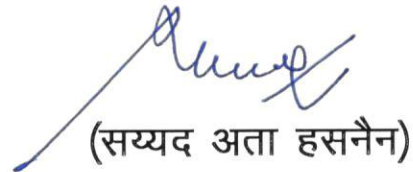 (सय्यद अता हसनैन)